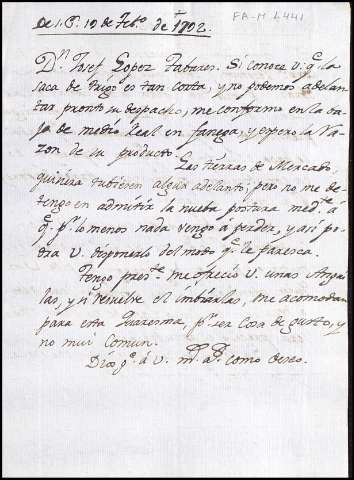 FA-M 4441
10 de Feb.º de 1802.
D.n Josef Lopez Tabares. Si conoce v. q.e la
saca de trigo es tan corta, y no podemos adelan
tar pronto su despacho, me conformo en la va
ja de medio Real en fanega, y espero la Ra
zon de su producto.
Las tierras de Mercado,
quisiera tubiesen algun adelanto; pero no me de
tengo en admitir la nueba postura med.te á
q.e p.r lo menos nada vengo á perder, y asi po
dra v. disponerlo del modo q.e le paresca.
Tengo pres.te me ofrecio v. unas Angui
las, y si resuelve el imbiarlas, me acomodan
para esta Quaresma, p.r ser cosa de gusto, y
no mui comun.
Dios g.e á v. m.s a.s como deseo.